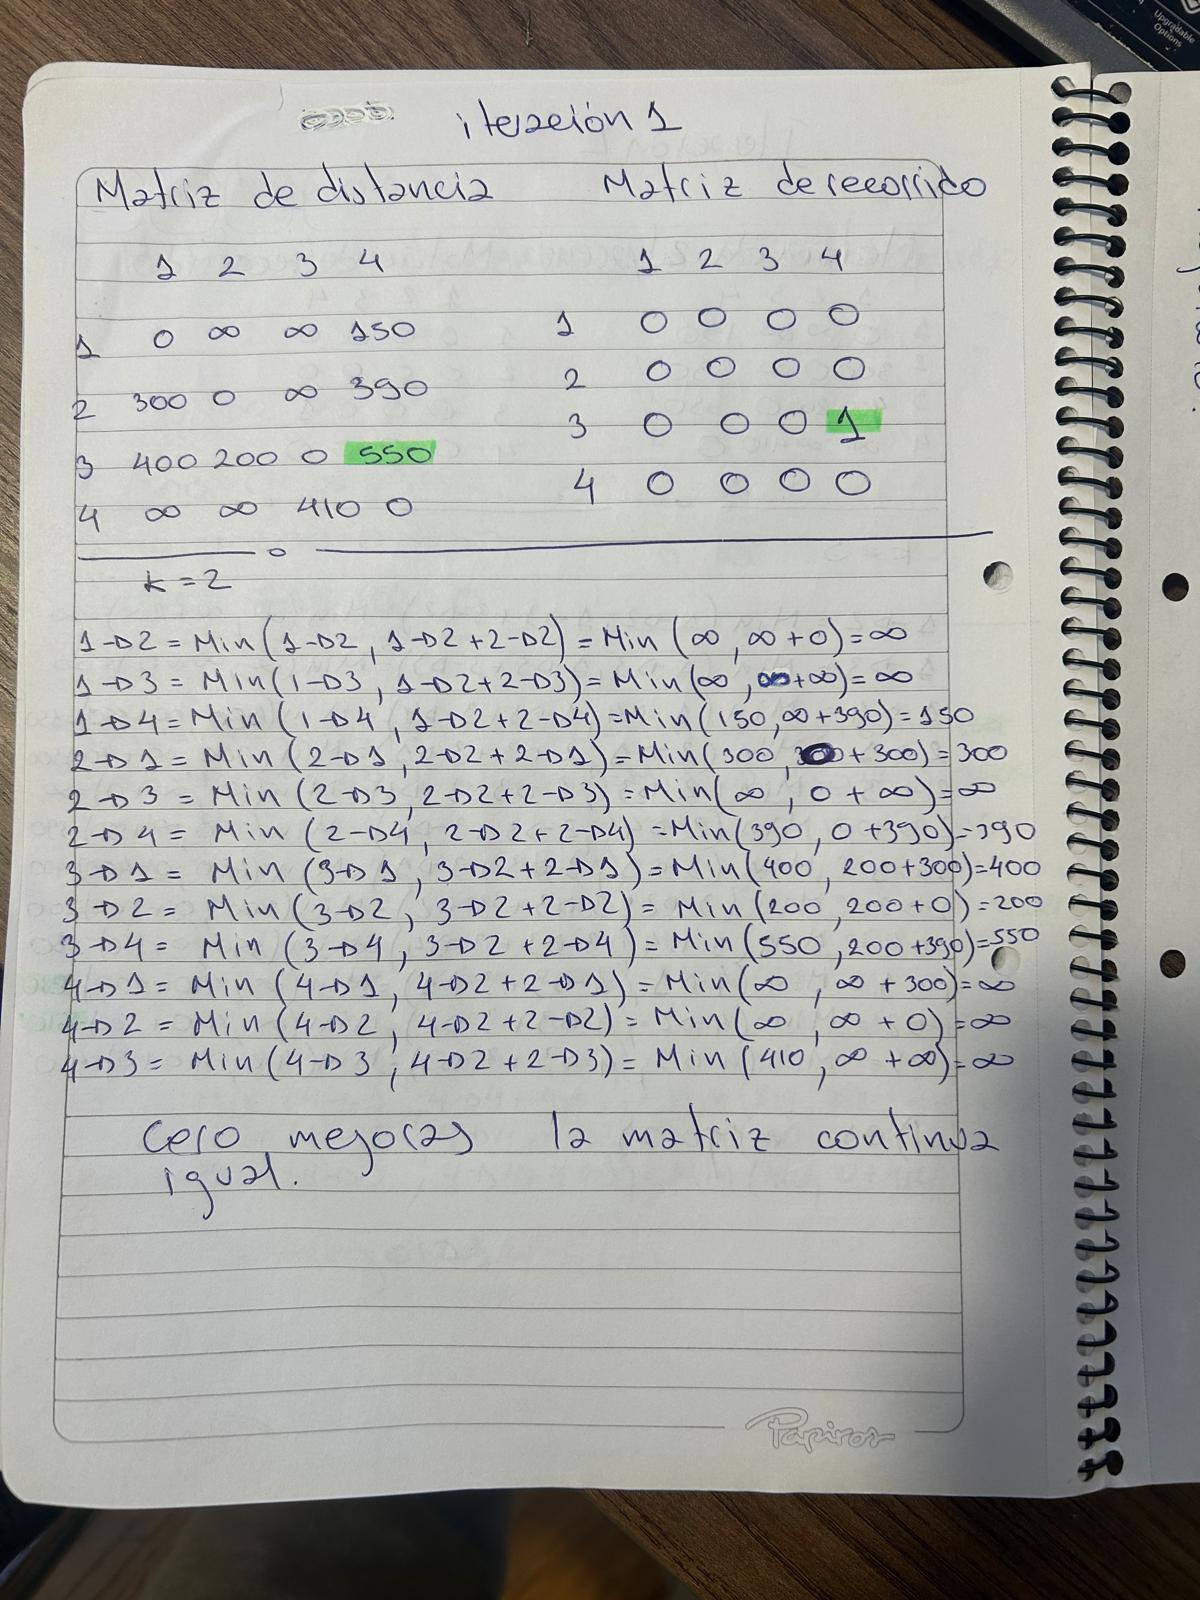 iteración 1
Matriz de distancia Matriz de recorrido
1 2 3 4 1 2 3 4
1 0 ∞ ∞ 150 1 0 0 0 0
2 300 0 ∞ 390 2 0 0 0 0
3 400 200 0 550 3 0 0 0 1
4 ∞ ∞ 410 0 4 0 0 0 0
k = 2
1→2 = Min (1→2, 1→2+2→2) = Min (∞, ∞+0) = ∞
1→3 = Min (1→3, 1→2+2→3) = Min (∞, ∞+∞) = ∞
1→4 = Min (1→4, 1→2+2→4) = Min (150, ∞+390) = 150
2→1 = Min (2→1, 2→2+2→1) = Min (300, +300) = 300
2→3 = Min (2→3, 2→2+2→3) = Min (∞, 0+∞) = ∞
2→4 = Min (2→4, 2→2+2→4) = Min (390, 0+390) = 390
3→1 = Min (3→1, 3→2+2→1) = Min (400, 200+300) = 400
3→2 = Min (3→2, 3→2+2→2) = Min (200, 200+0) = 200
3→4 = Min (3→4, 3→2+2→4) = Min (550, 200+390) = 550
4→1 = Min (4→1, 4→2+2→1) = Min (∞, ∞+300) = ∞
4→2 = Min (4→2, 4→2+2→2) = Min (∞, ∞+0) = ∞
4→3 = Min (4→3, 4→2+2→3) = Min (410, ∞+∞) = ∞
Cero mejoras la matriz continua
igual.
Papiros
Upgradable
Options